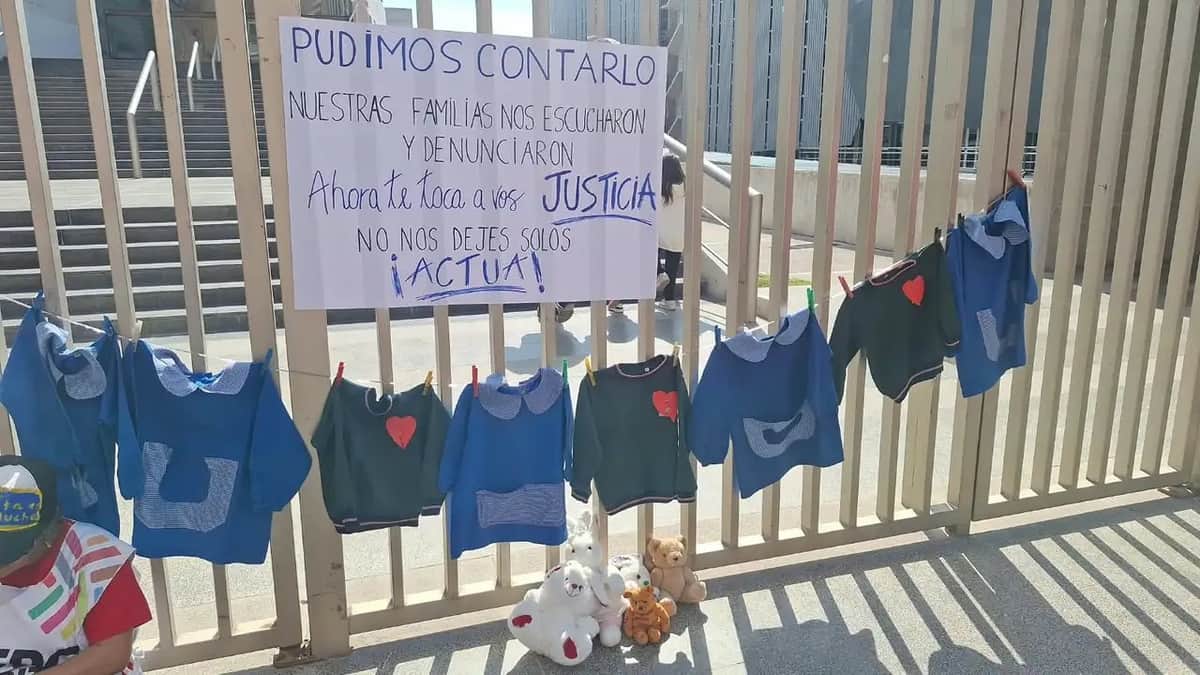 PUDIMOS CONTARLO
NUESTRAS FAMILIAS NOS ESCUCHARON
Y DENUNCIARON
Ahora te toca a vos JUSTICIA
NO NOS DEJES SOLOS
¡ACTUA!